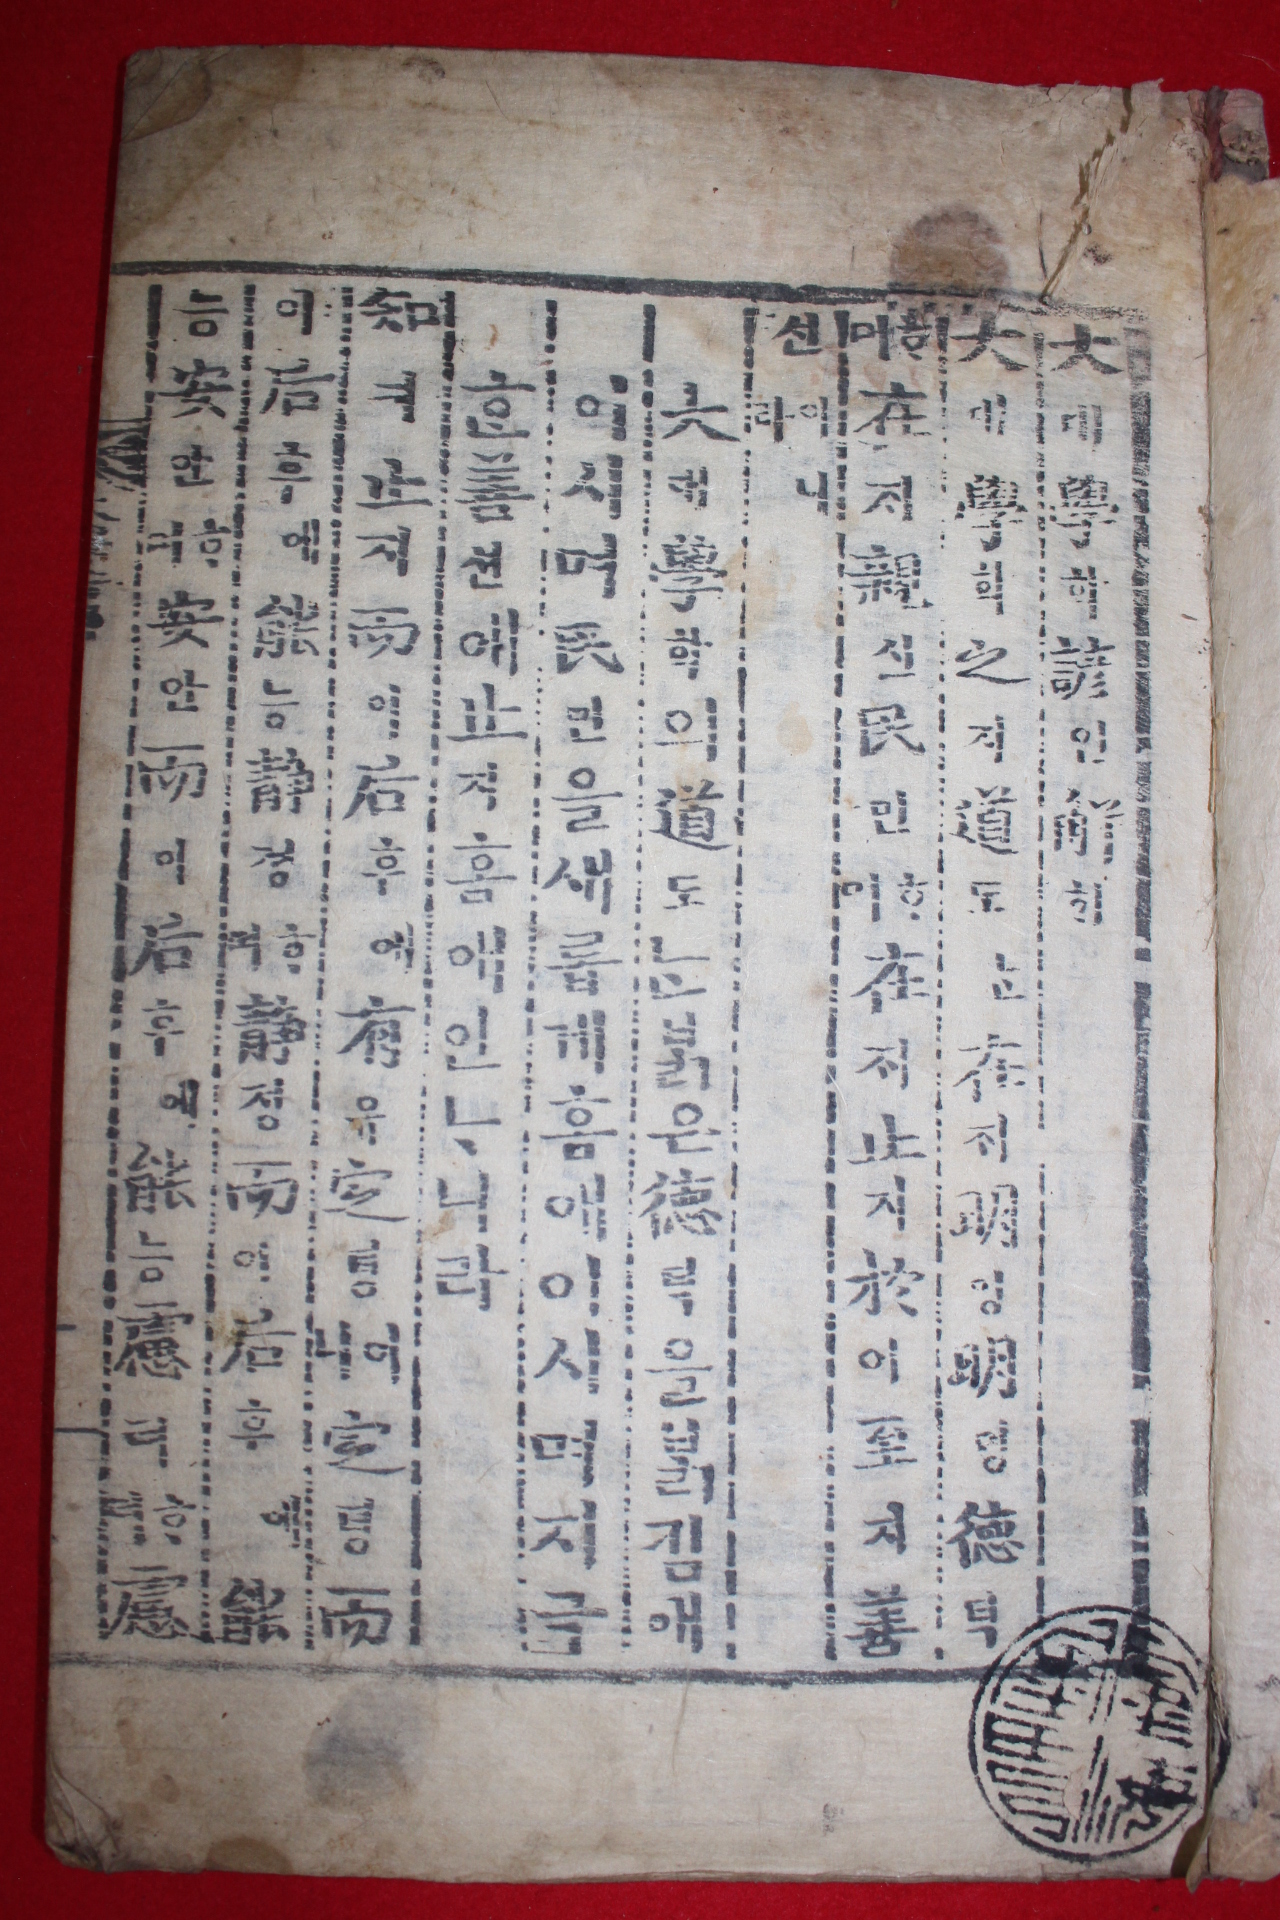 大대學학諺언解ᄒᆡ
大대學학之지道도ᄂᆞᆫ在ᄌᆡ明명明명德덕
ᄒᆞ며在ᄌᆡ親신民민ᄒᆞ며在ᄌᆡ止지於어至지善
션이니라
大대學학의道도ᄂᆞᆫᄇᆞᆯ은德덕을ᄇᆞᆰ킴애
이시며民민을새롭게홈애이시며지극
ᄒᆞᆫ善션에止지홈애인ᄂᆞ니라
知지止지而이后후에有유定뎡이니定뎡而
이后후에能능靜졍ᄒᆞ며靜졍而이后후에能
능安안ᄒᆞ며安안而이后후에能능慮려ᄒᆞ며慮